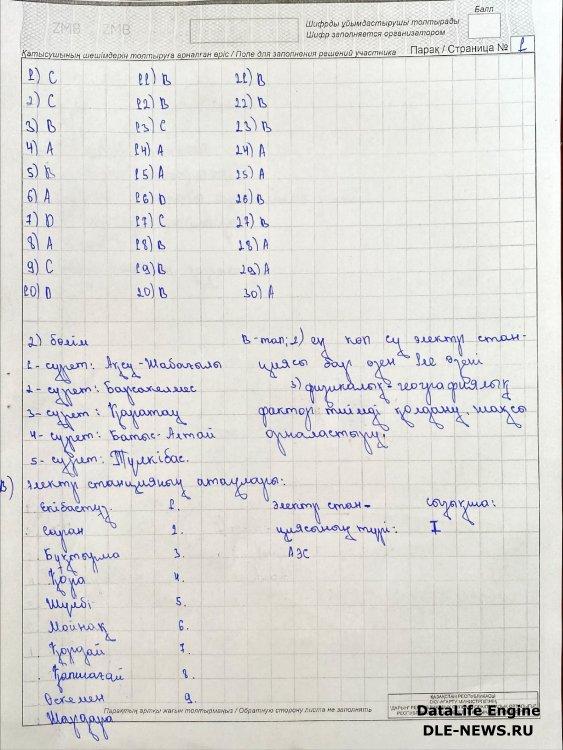 Балл
Шифрды ұйымдастырушы толтырады
Шифр заполняется организатором
Қатысушының шешімдерін толтыруға арналған өріс / Поле для заполнения решений участника
Парақ / Страница № 1
1) C
2) C
3) B
4) A
5) B
6) A
7) D
8) A
9) C
10) D
11) B
12) B
13) C
14) A
15) A
16) D
17) C
18) B
19) B
20) B
21) B
22) B
23) B
24) A
25) A
26) B
27) B
28) A
29) A
30) A
2) бөлім
1- сурет: Ақсу-Жабағылы
2- сурет: Барсакелмес
3- сурет: Қаратау
4- сурет: Батыс-Алтай
5- сурет: Түлкібас.
В-тап; 2) ең көп су электр стан-
циясы бар өзен Іле өзені
3) физикалық-географиялық
фактор тиімді қолдану, жақсы
орналастыру.
В) электр станцияның атаулары:
Екібастұз 1.
Саран 2.
Бұқтырма 3.
Қора 4.
Шүлбі 5.
Мойнақ 6.
Қордай 7.
Қапшағай 8.
Өскемен 9.
Шардара
электр стан-
циясының түрі:
АЭС
сызықша:
I
Парақтың артқы жағын толтырмаңыз / Обратную сторону листа не заполнять
ҚАЗАҚСТАН РЕСПУБЛИКАСЫ
ОҚУ-АҒАРТУ МИНИСТРЛІГІНІҢ
DataLife Engine
DLE-NEWS.RU